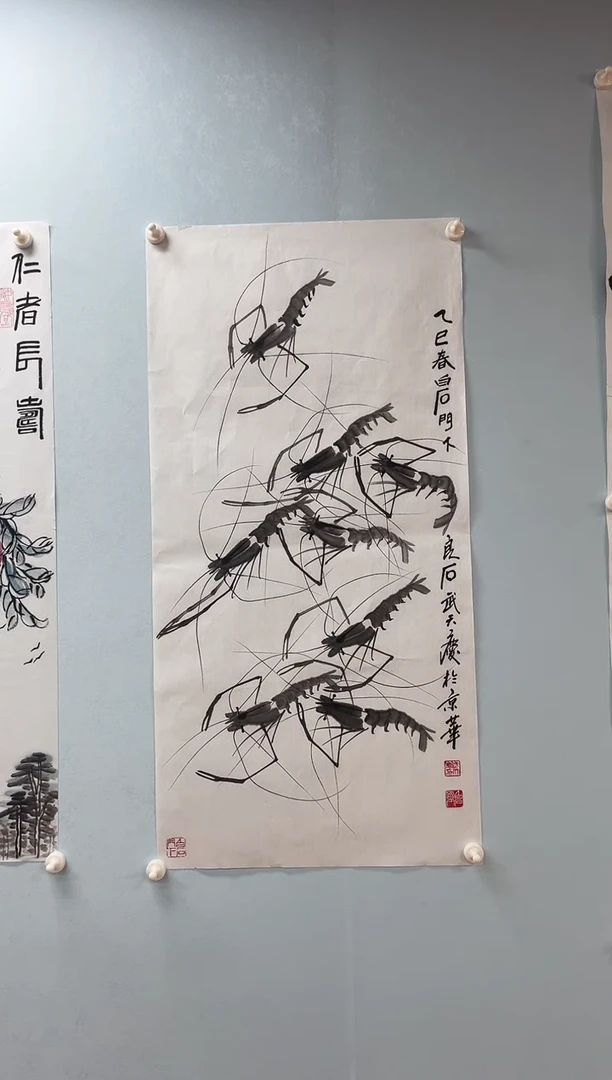 仁者長壽
乙巳春白石門下
良石武天廣於京華